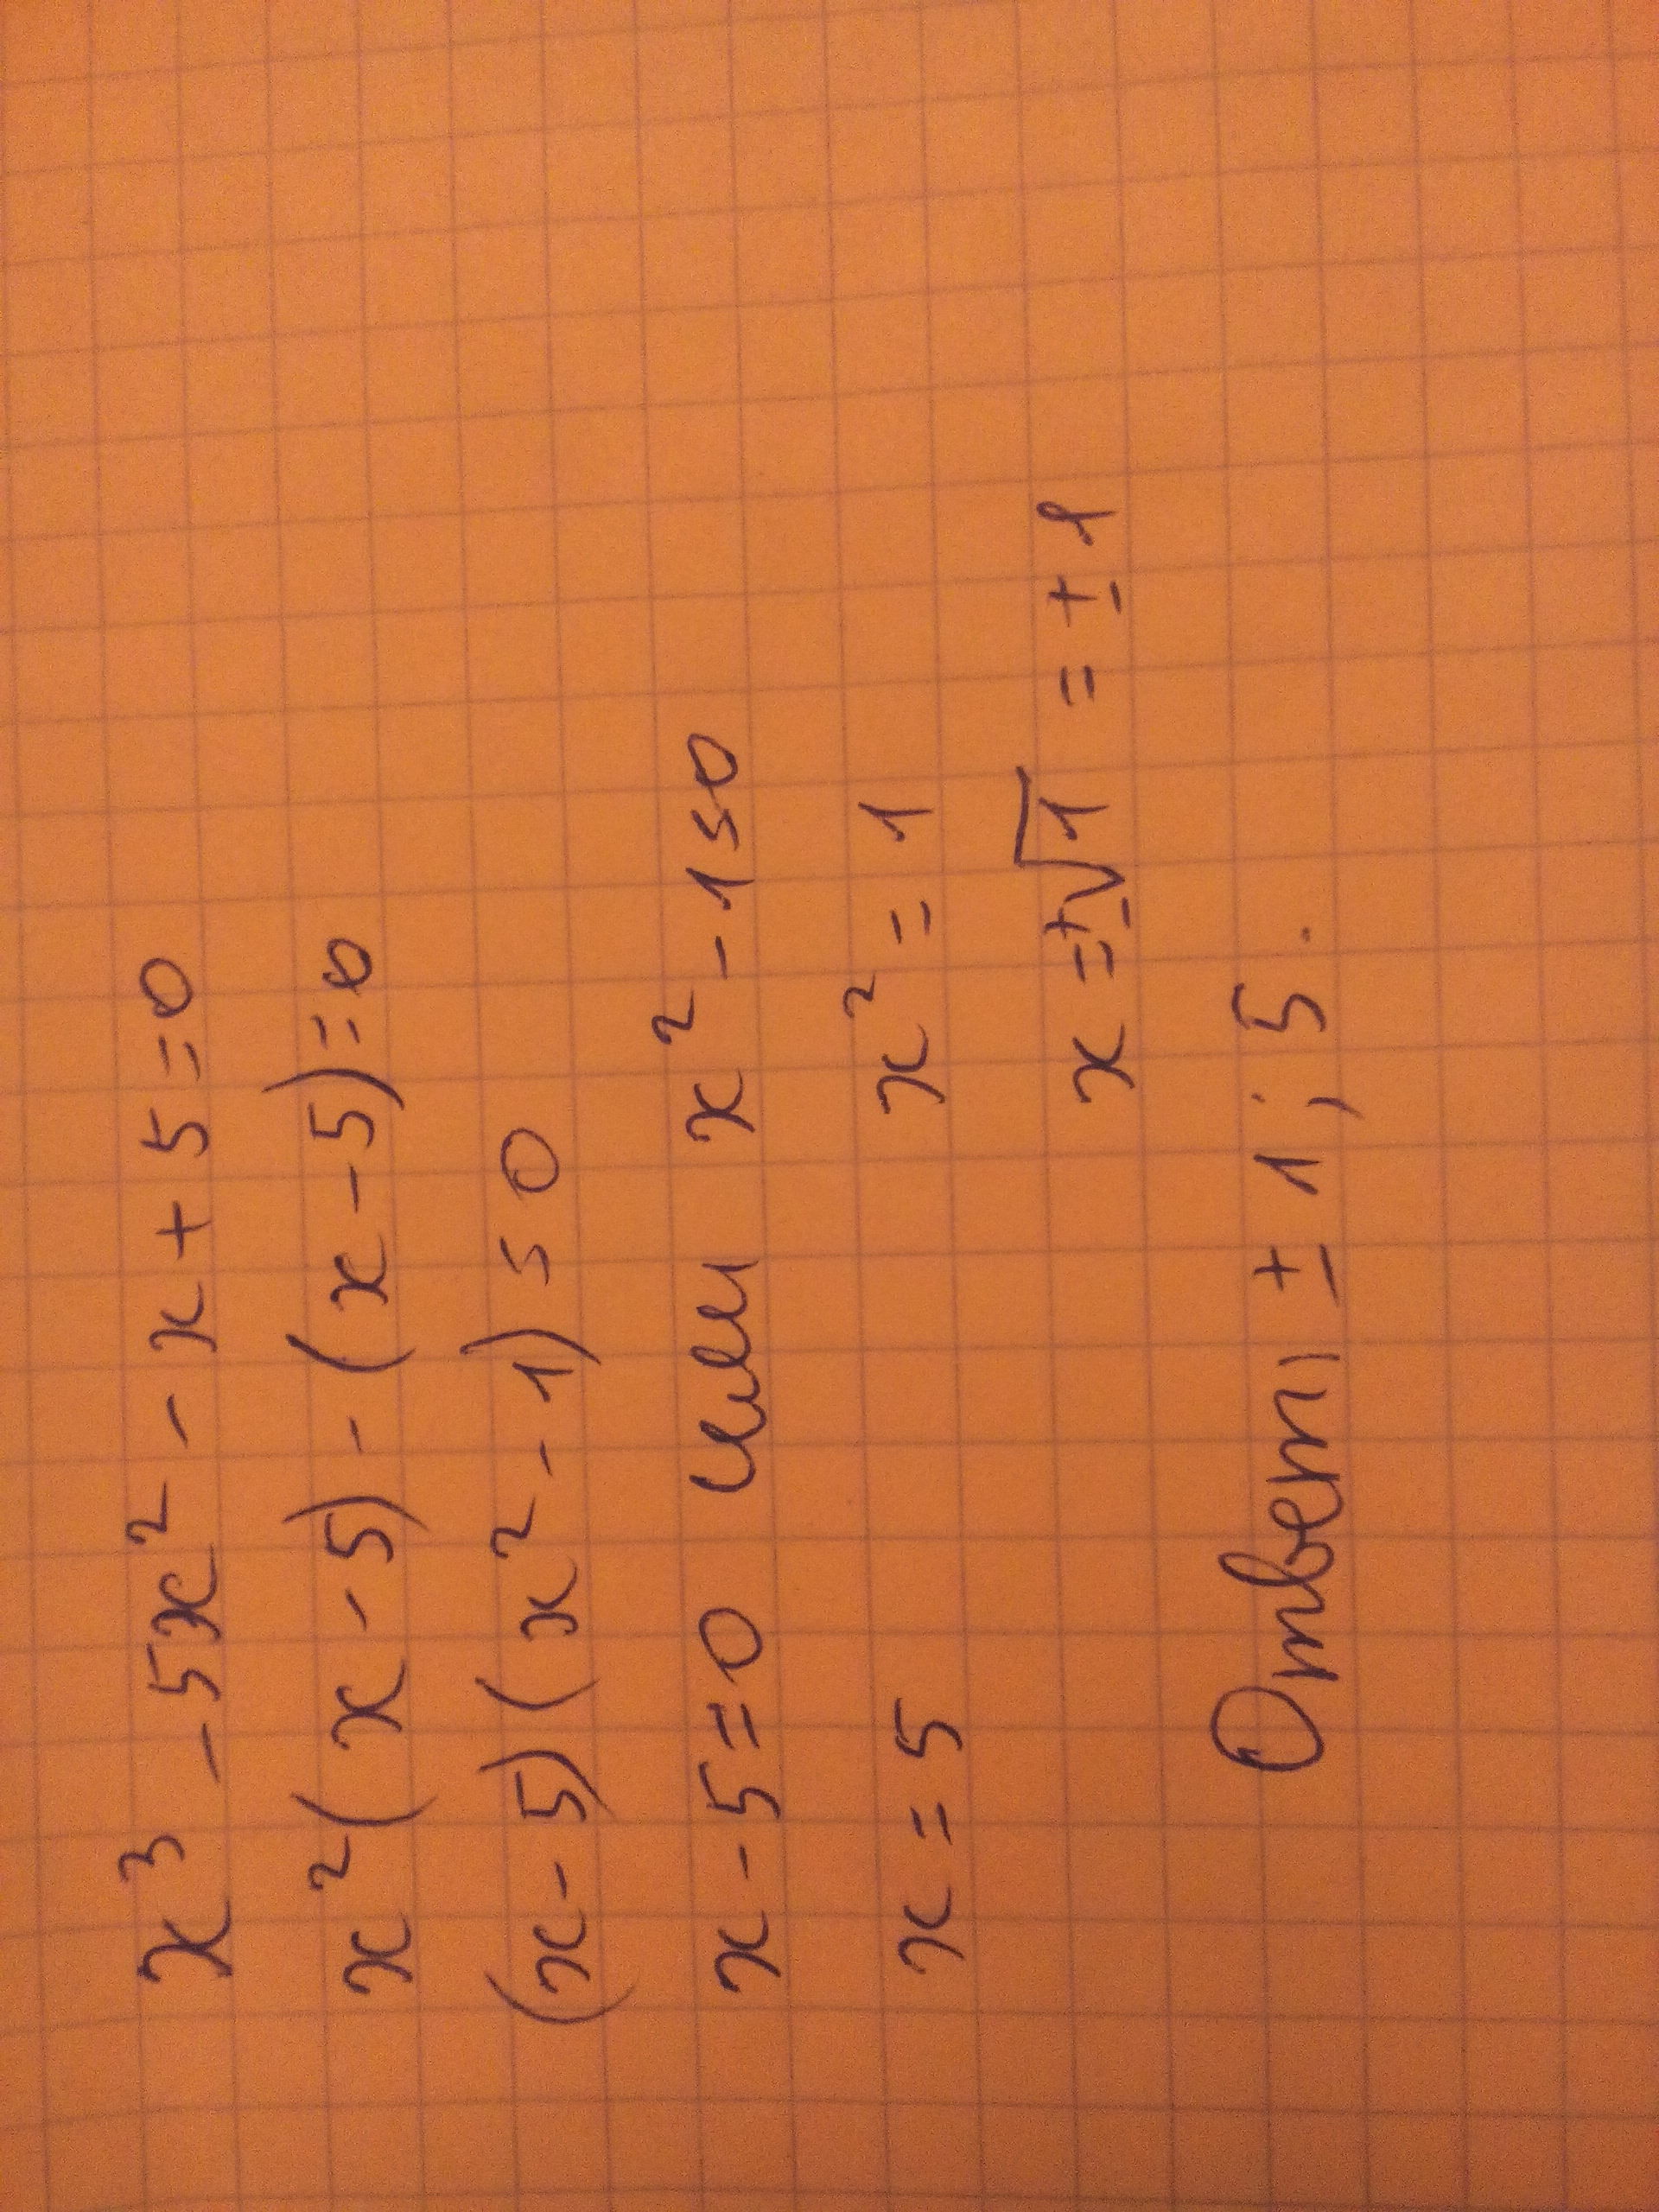 x³ - 5x² - x + 5 = 0
x²(x - 5) - (x - 5) = 0
(x - 5)(x² - 1) = 0
x - 5 = 0 или x² - 1 = 0
x = 5 x² = 1
x = ±√1 = ±1
Ответ: ±1; 5.